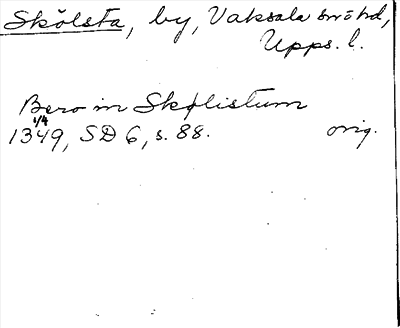 Skölsta, by, Vaksala snöhd,
Upps. l.
Bero in Skølistum
1/4
1349, SD 6, s. 88. orig.